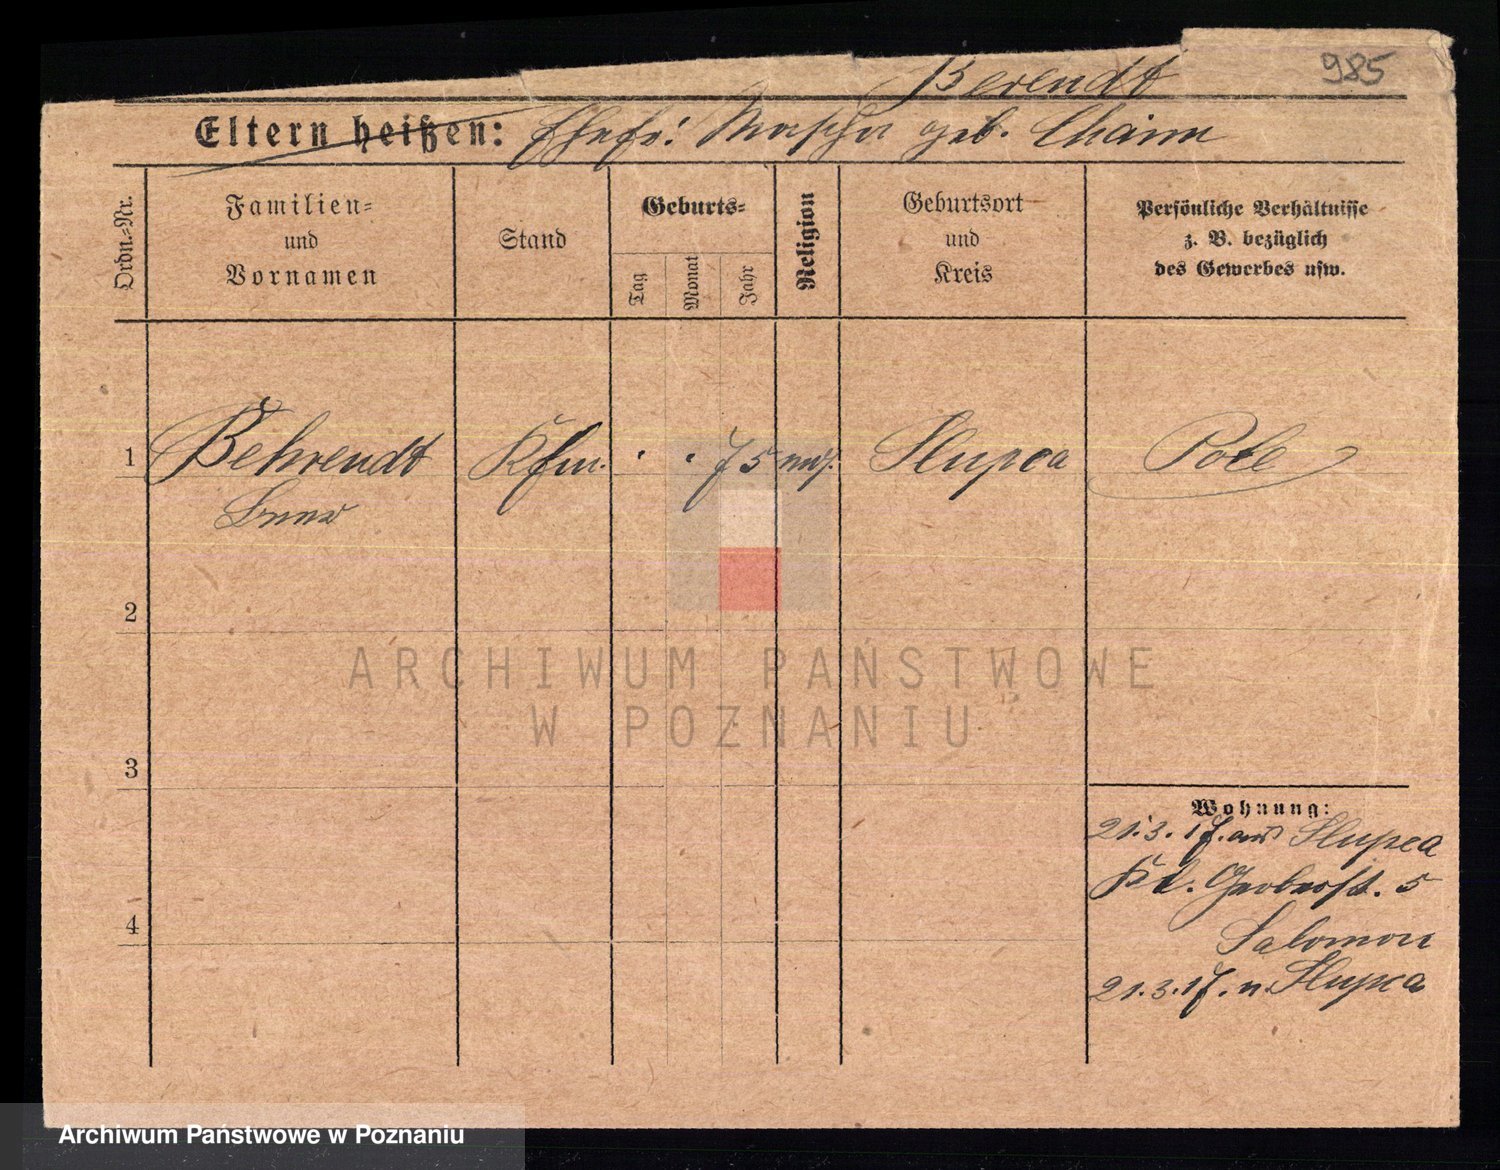 985
Berendt
Eltern heißen: Ehefr: Mascha geb. Chaim
Ordn.-Nr.
Familien-
und
Vornamen
Stand
Geburts-
Tag
Monat
Jahr
Religion
Geburtsort
und
Kreis
Persönliche Verhältnisse
z. B. bezüglich
des Gewerbes usw.
1
Behrendt Kfm. . . 75 mos. Slupca Pole
2
3
4
Wohnung:
21.3.17. aus Slupca
Kl. Gerberst. 5
Salomon
21.3.17. n. Slupca
ARCHIWUM PAŃSTWOWE
W POZNANIU
Archiwum Państwowe w Poznaniu